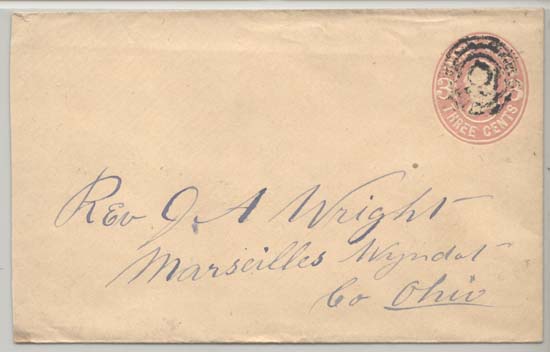 THREE CENTS
Rev J A Wright
Marseilles Wyndot
Co Ohio